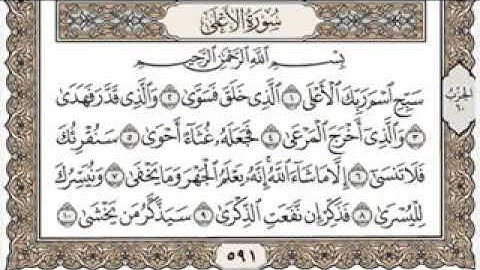 سُورَةُ الأَعْلَى
بِسْمِ اللَّهِ الرَّحْمَٰنِ الرَّحِيمِ
سَبِّحِ اسْمَ رَبِّكَ الْأَعْلَى ١ الَّذِي خَلَقَ فَسَوَّىٰ ٢ وَالَّذِي قَدَّرَ فَهَدَىٰ
٣ وَالَّذِي أَخْرَجَ الْمَرْعَىٰ ٤ فَجَعَلَهُ غُثَاءً أَحْوَىٰ ٥ سَنُقْرِئُكَ
فَلَا تَنسَىٰ ٦ إِلَّا مَا شَاءَ اللَّهُ إِنَّهُ يَعْلَمُ الْجَهْرَ وَمَا يَخْفَىٰ ٧ وَنُيَسِّرُكَ
لِلْيُسْرَىٰ ٨ فَذَكِّرْ إِن نَّفَعَتِ الذِّكْرَىٰ ٩ سَيَذَّكَّرُ مَن يَخْشَىٰ ١٠
الجزء
٦٠
٥٩١